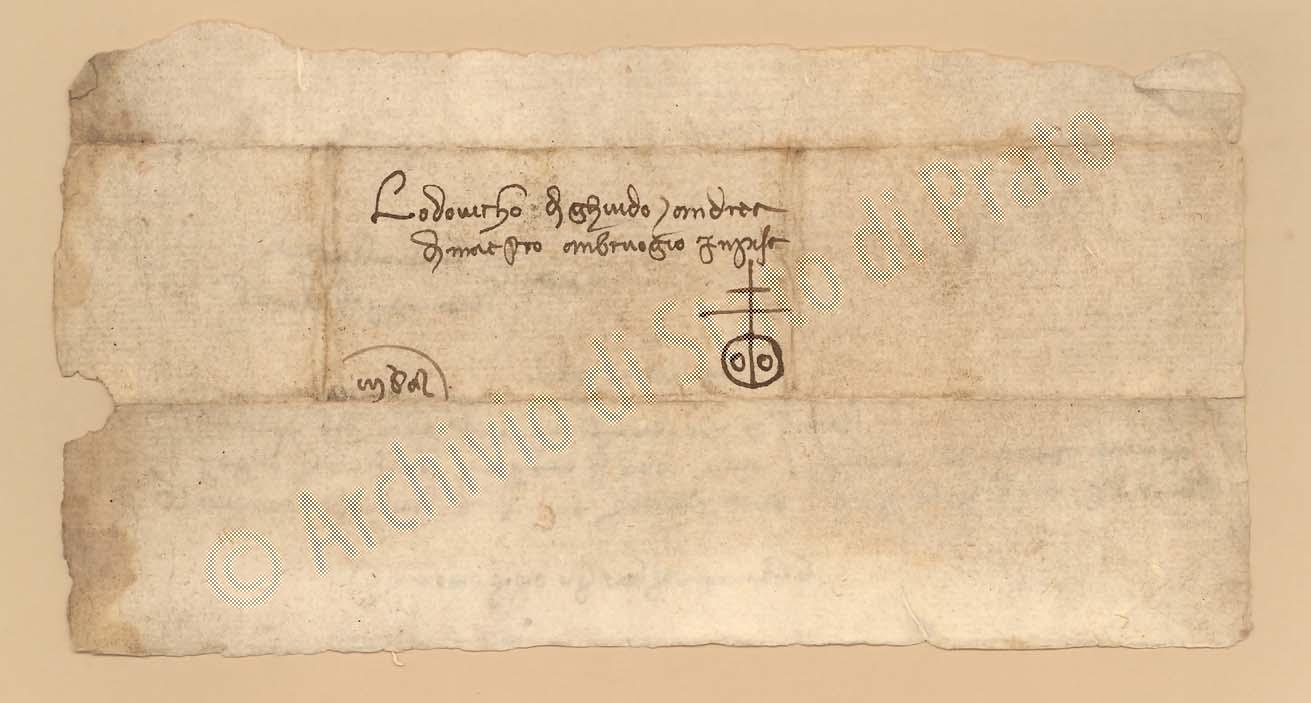 Lodovicho di ghuido / andrea
di maestro ambruogio In pisa
© Archivio di Stato di Prato